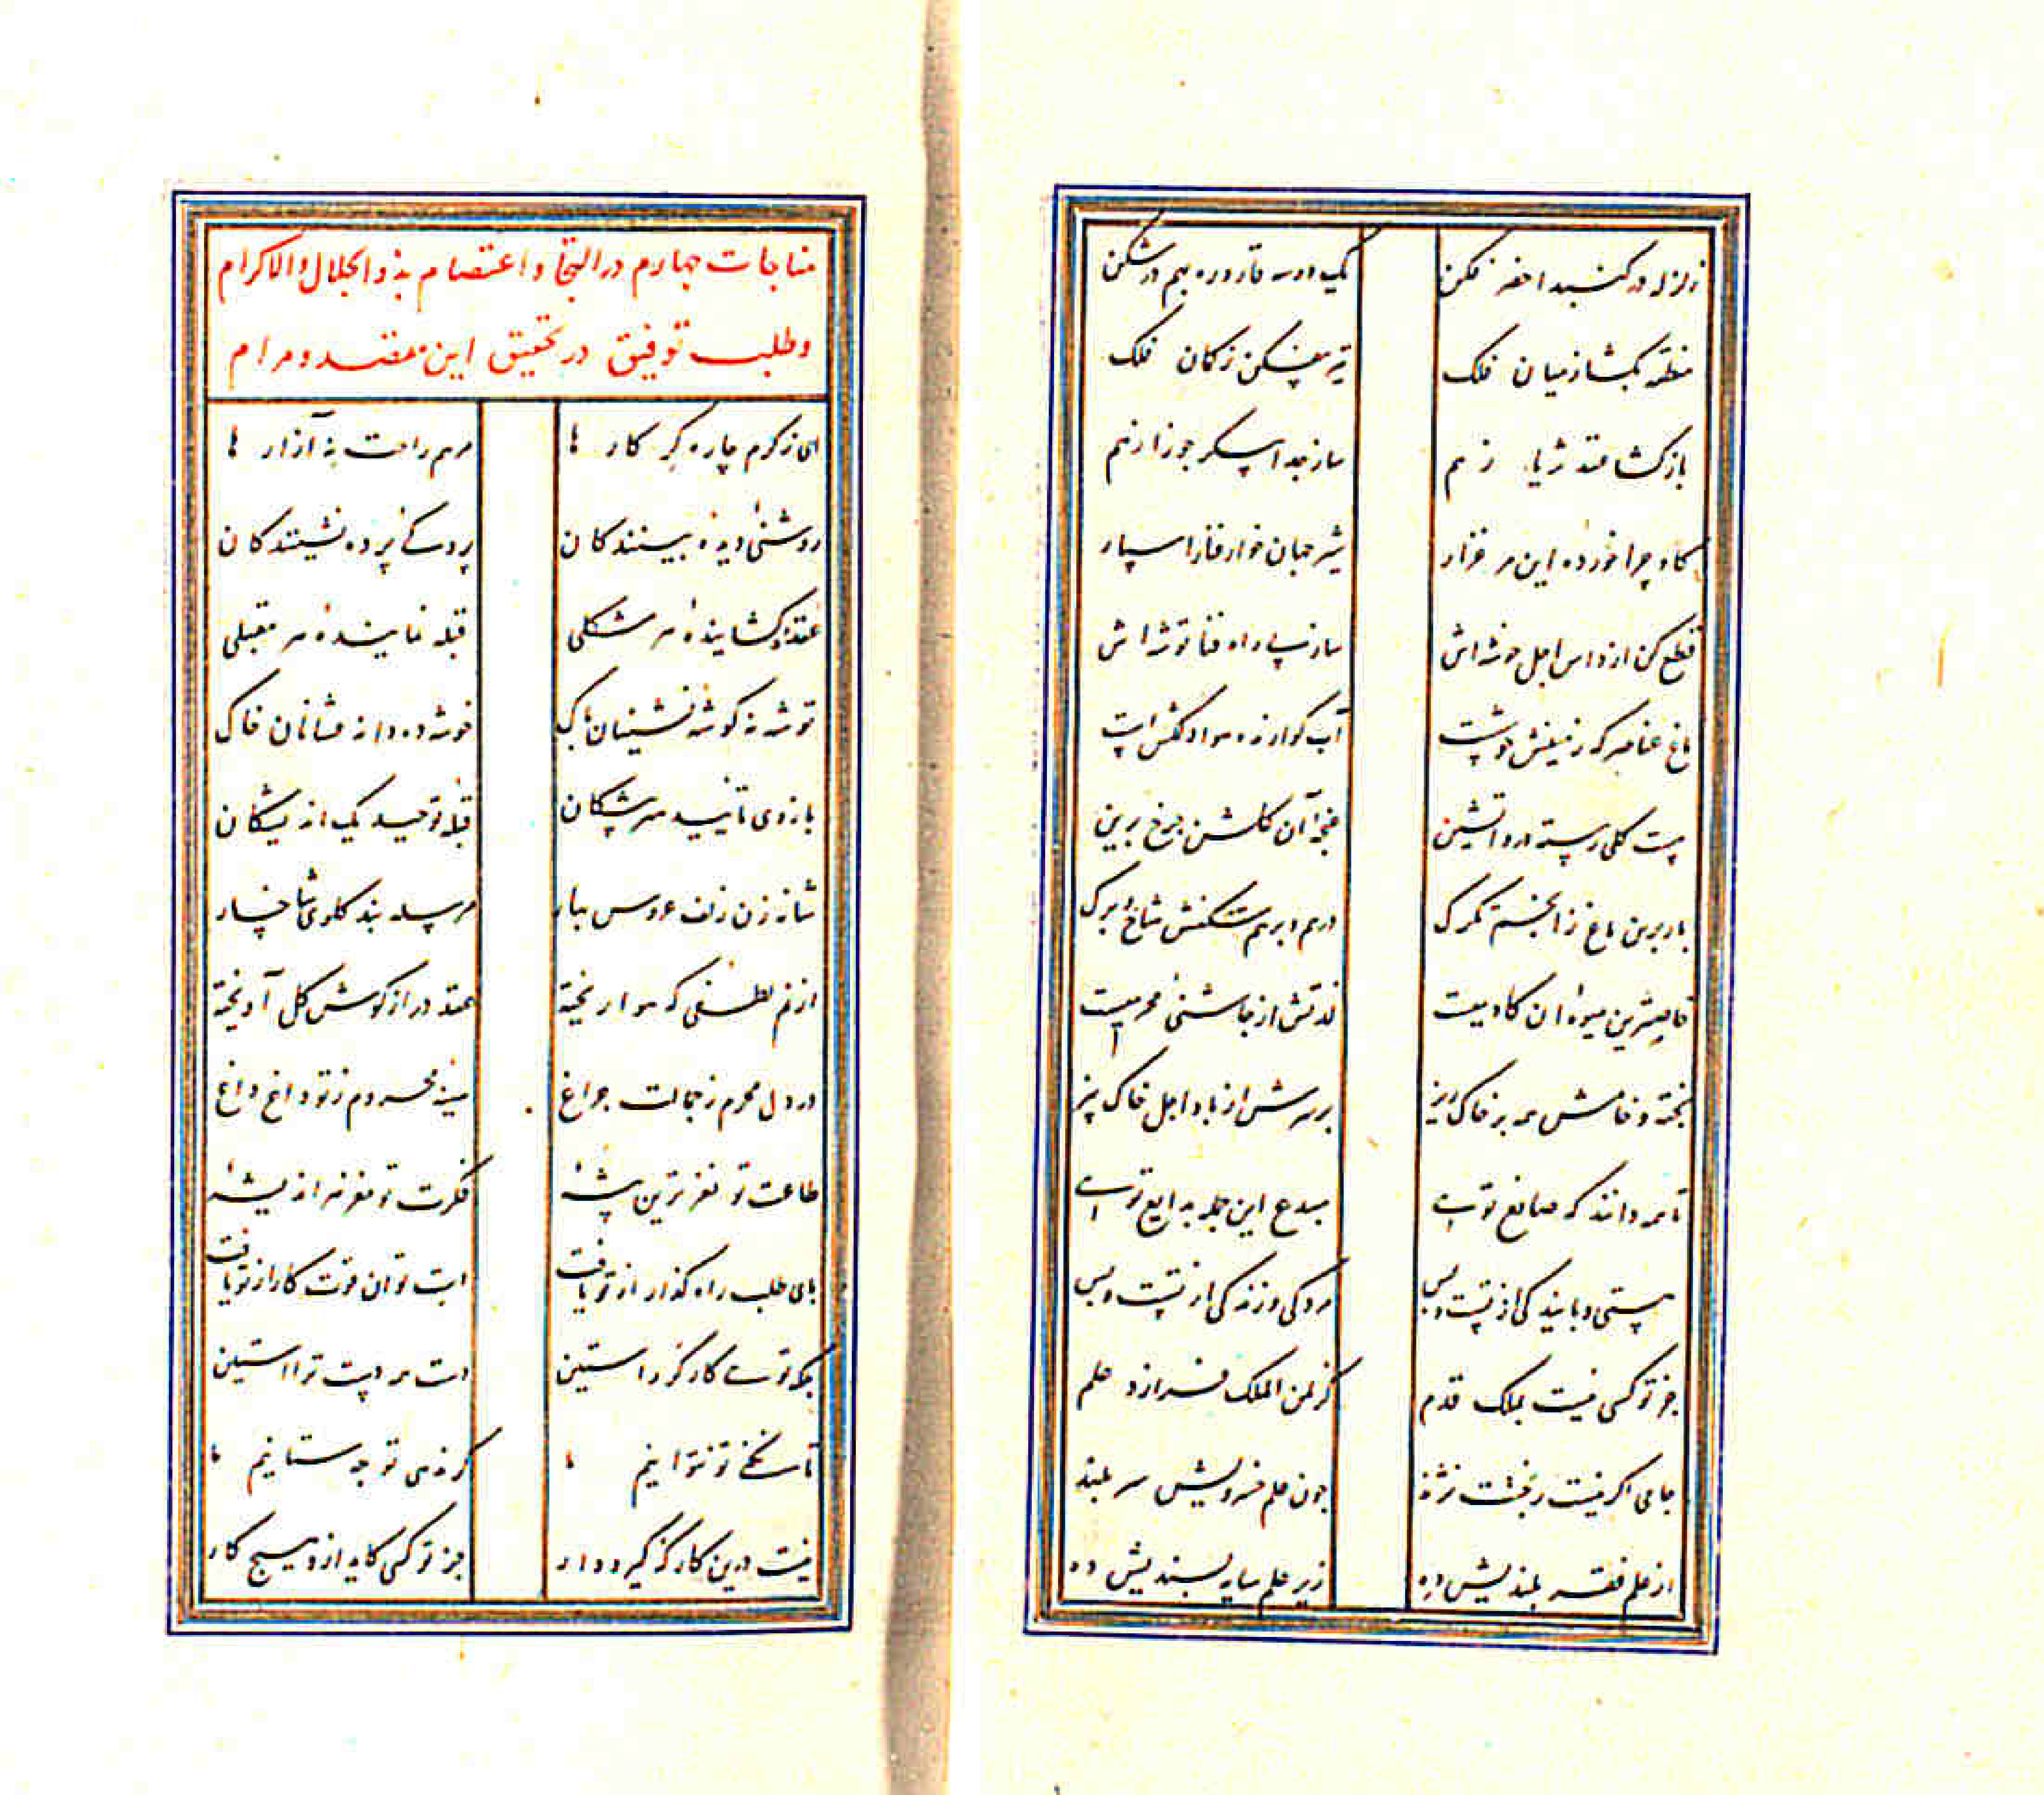 زلزله در کنبد اخضر فکن یک دو سه قاروره بهم در شکن
منطقه بکشا ز میان فلک تیر بیفکن ز کمان فلک
باز کشا عقد ثریا ز هم ساز جدا پیکر جوزا ز هم
کاو چرا خورده این مرغزار شیر جهان خوار فنا را سپار
قطع کن از داس اجل خوشه اش ساز پی راه فنا توشه اش
باغ عناصر که زمینش خوشست آب کوارنده هوا دلکش است
هست کلی رسته درو آتشین غنچه آن کلشن چرخ برین
بار برین باغ ز انجم تکرک درهم و برهم شکنش شاخ و برک
میوه آن کادمیست لذتش از چاشنی محرمیست
پخته و خامش همه بر خاک ریز بر سرش از باد اجل خاک بیز
تا همه دانند که صانع تویی مبدع این جمله بدایع تویی
هستی و پایندکی از تست و بس مردکی و زندکی از تست و بس
جز تو کسی نیست بملک قدم کز لمن الملک فرازد علم
جامی اکر نیست ز بخت نژند چون علم خسرویش سر بلند
از علم فقر بلندیش ده زیر علم سایه پسندیش ده
مناجات چهارم در التجا و اعتصام بذو الجلال والاکرام
و طلب توفیق در تحقیق این مقصد و مرام
ای ز کرم چاره کر کار ها مرهم راحت نه آزار ها
روشنی دیده بینندکان پردکی پرده نشینندکان
عقده کشاینده هر مشکلی قبله نماینده هر مقبلی
توشه نه کوشه نشینان پاک خوشه ده دانه فشانان خاک
بازوی تایید هنر پیشکان قبله توحید یک اندیشکان
شانه زن زلف عروس بهار مرسله بند کلوی شاخسار
از نم لطفی که هوا ریخته عقد در از کوش کل آویخته
در دل محرم ز جمالت چراغ سینه محروم ز تو داغ داغ
طاعت تو نغزترین پیشه فکرت تو مغز نه اندیشه
پای طلب راه کذار از تو یافت دست توان قوت کار از تو یافت
بلکه تویی کارکر راستین دست همه دست ترا آستین
تا نکنی تو نتوانیم ما کر ندهی تو چه ستانیم ما
نیست درین کارکه کیر و دار جز تو کسی کاید ازو هیچ کار